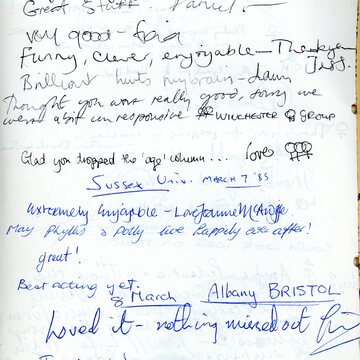 Great Stuff. Daniel. -
very good - 
Funny, clever, enjoyable - Thankyou
Jess.
Brilliant hurts my brain - dawn
Thought you were really good, sorry we
were a bit un responsive WINCHESTER GROUP
Glad you dropped the 'age' column... love
SUSSEX UNIV. MARCH 7 '85
Extremely Enjoyable - Love Joanne
May Phyllis & Polly live happily ever after!
great!
Best acting yet.
8 March Albany BRISTOL
Loved it - nothing missed out